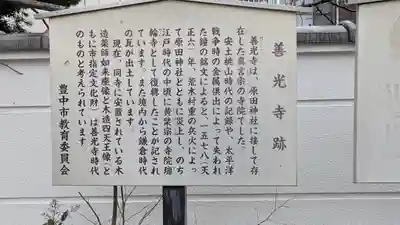 善光寺跡
善光寺は、原田神社に接して存
在した真言宗の寺院でした。
安土桃山時代の記録や、太平洋
戦争時の金属供出によって失われ
た鐘の銘文によると、一五七八（天
正六）年、荒木村重の兵火によっ
て原田神社とともに炎上し、のち
江戸時代の中頃に黄檗宗の寺院瑞
輪寺として復興したことが記され
ています。また境内から鎌倉時代
の瓦が出土しています。
現在、同寺に安置されている木
造薬師如来座像と木造四天王像（と
もに市指定文化財）は善光寺時代
のものと考えられています。
豊中市教育委員会